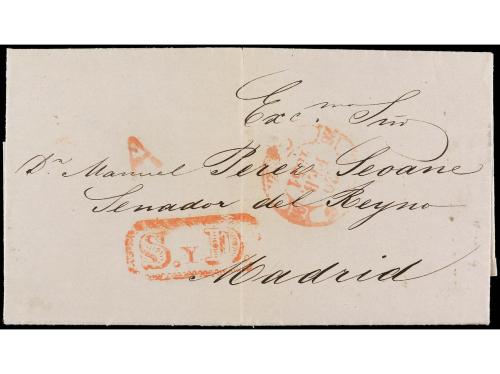 Exc.mo Sñr
Dn. Manuel Perez Seoane
Senador del Reyno
S.Y D
Madrid
A